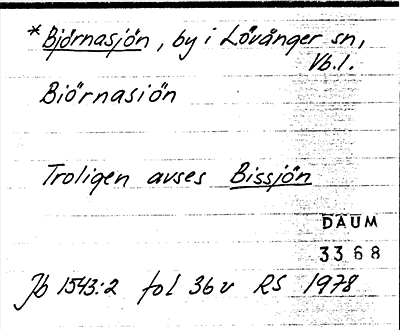 *Bjōrnasjōn, by i Lōvånger sn,
Vb.l.
Biōrnasiōn
Troligen avses Bissjōn
DAUM
3368
Jb 1543:2 fol 36v RS 1978